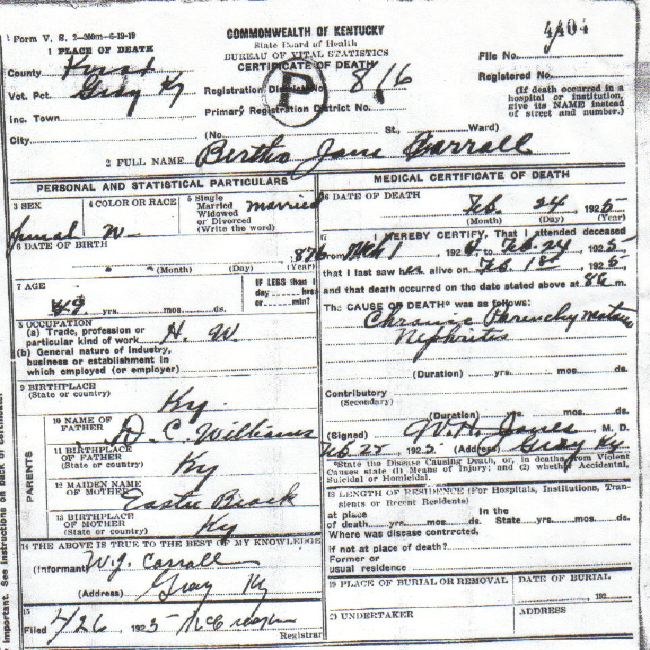 Form V. S. 2—
COMMONWEALTH OF KENTUCKY
State Board of Health
BUREAU OF VITAL STATISTICS
CERTIFICATE OF DEATH
1 PLACE OF DEATH
County
Vot. Pct. Gray Ky
Inc. Town
City
File No.
Registered No.
(If death occurred in a
hospital or institution,
give its NAME instead
of street and number.)
Registration District No. 816
Primary Registration District No.
(No. St., Ward)
2 FULL NAME Bertha Jane Carroll
PERSONAL AND STATISTICAL PARTICULARS
3 SEX
4 COLOR OR RACE W
5 Single
Married
Widowed
or Divorced
(Write the word) Married
6 DATE OF BIRTH
(Month) (Day) (Year)
7 AGE
yrs. mos. ds.
IF LESS than 1
day hrs.
or min?
8 OCCUPATION
(a) Trade, profession or
particular kind of work H. W.
(b) General nature of industry,
business or establishment in
which employed (or employer)
9 BIRTHPLACE
(State or country) Ky
PARENTS
10 NAME OF
FATHER D. C. Williams
11 BIRTHPLACE
OF FATHER
(State or country) Ky
12 MAIDEN NAME
OF MOTHER Easter Brock
13 BIRTHPLACE
OF MOTHER
(State or country) Ky
14 THE ABOVE IS TRUE TO THE BEST OF MY KNOWLEDGE
(Informant) W. J. Carroll
(Address) Gray Ky
15
Filed 4/26 1925
Registrar
MEDICAL CERTIFICATE OF DEATH
16 DATE OF DEATH
Feb. 24 1925
(Month) (Day) (Year)
I HEREBY CERTIFY, That I attended deceased
from 1 192 Feb. 24 1925
that I last saw her alive on Feb. 1st 1925
and that death occurred on the date stated above at m.
The CAUSE OF DEATH* was as follows:
Chronic
Nephritis
(Duration) yrs. mos. ds.
Contributory
(Secondary)
(Duration) yrs. mos. ds.
(Signed) W. H. Jones M. D.
Feb 25 1925 (Address) Gray Ky
*State the Disease Causing Death, or, in deaths from Violent
Causes state (1) Means of Injury; and (2) whether Accidental,
Suicidal or Homicidal.
18 LENGTH OF RESIDENCE (For Hospitals, Institutions, Tran-
sients or Recent Residents)
at place
of death yrs. mos. ds.
In the
State yrs. mos. ds.
Where was disease contracted,
if not at place of death?
Former or
usual residence
19 PLACE OF BURIAL OR REMOVAL
DATE OF BURIAL
192
20 UNDERTAKER
ADDRESS
important. See instructions on back of certificate.